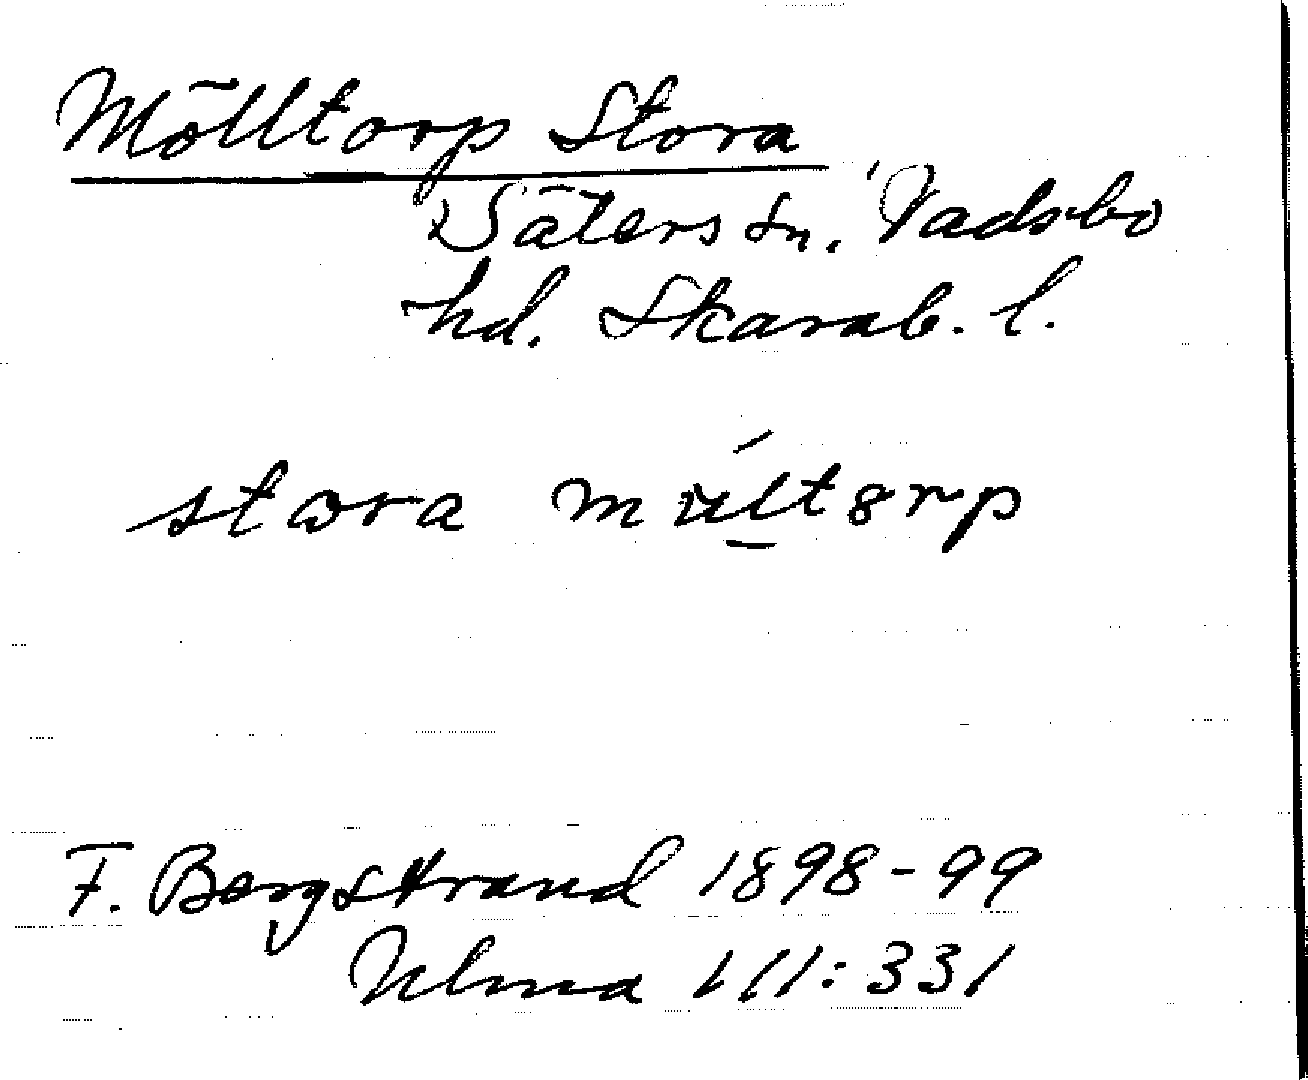 Mölltorp Stora
Säters sn. Vadsbo
hd. Skarab. l.
stora múltorp
F. Bergstrand 1898-99
Ulma 111:331